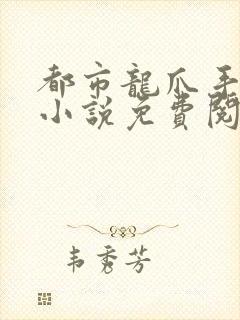 都市龍爪手
小說免費閱
韦秀芳